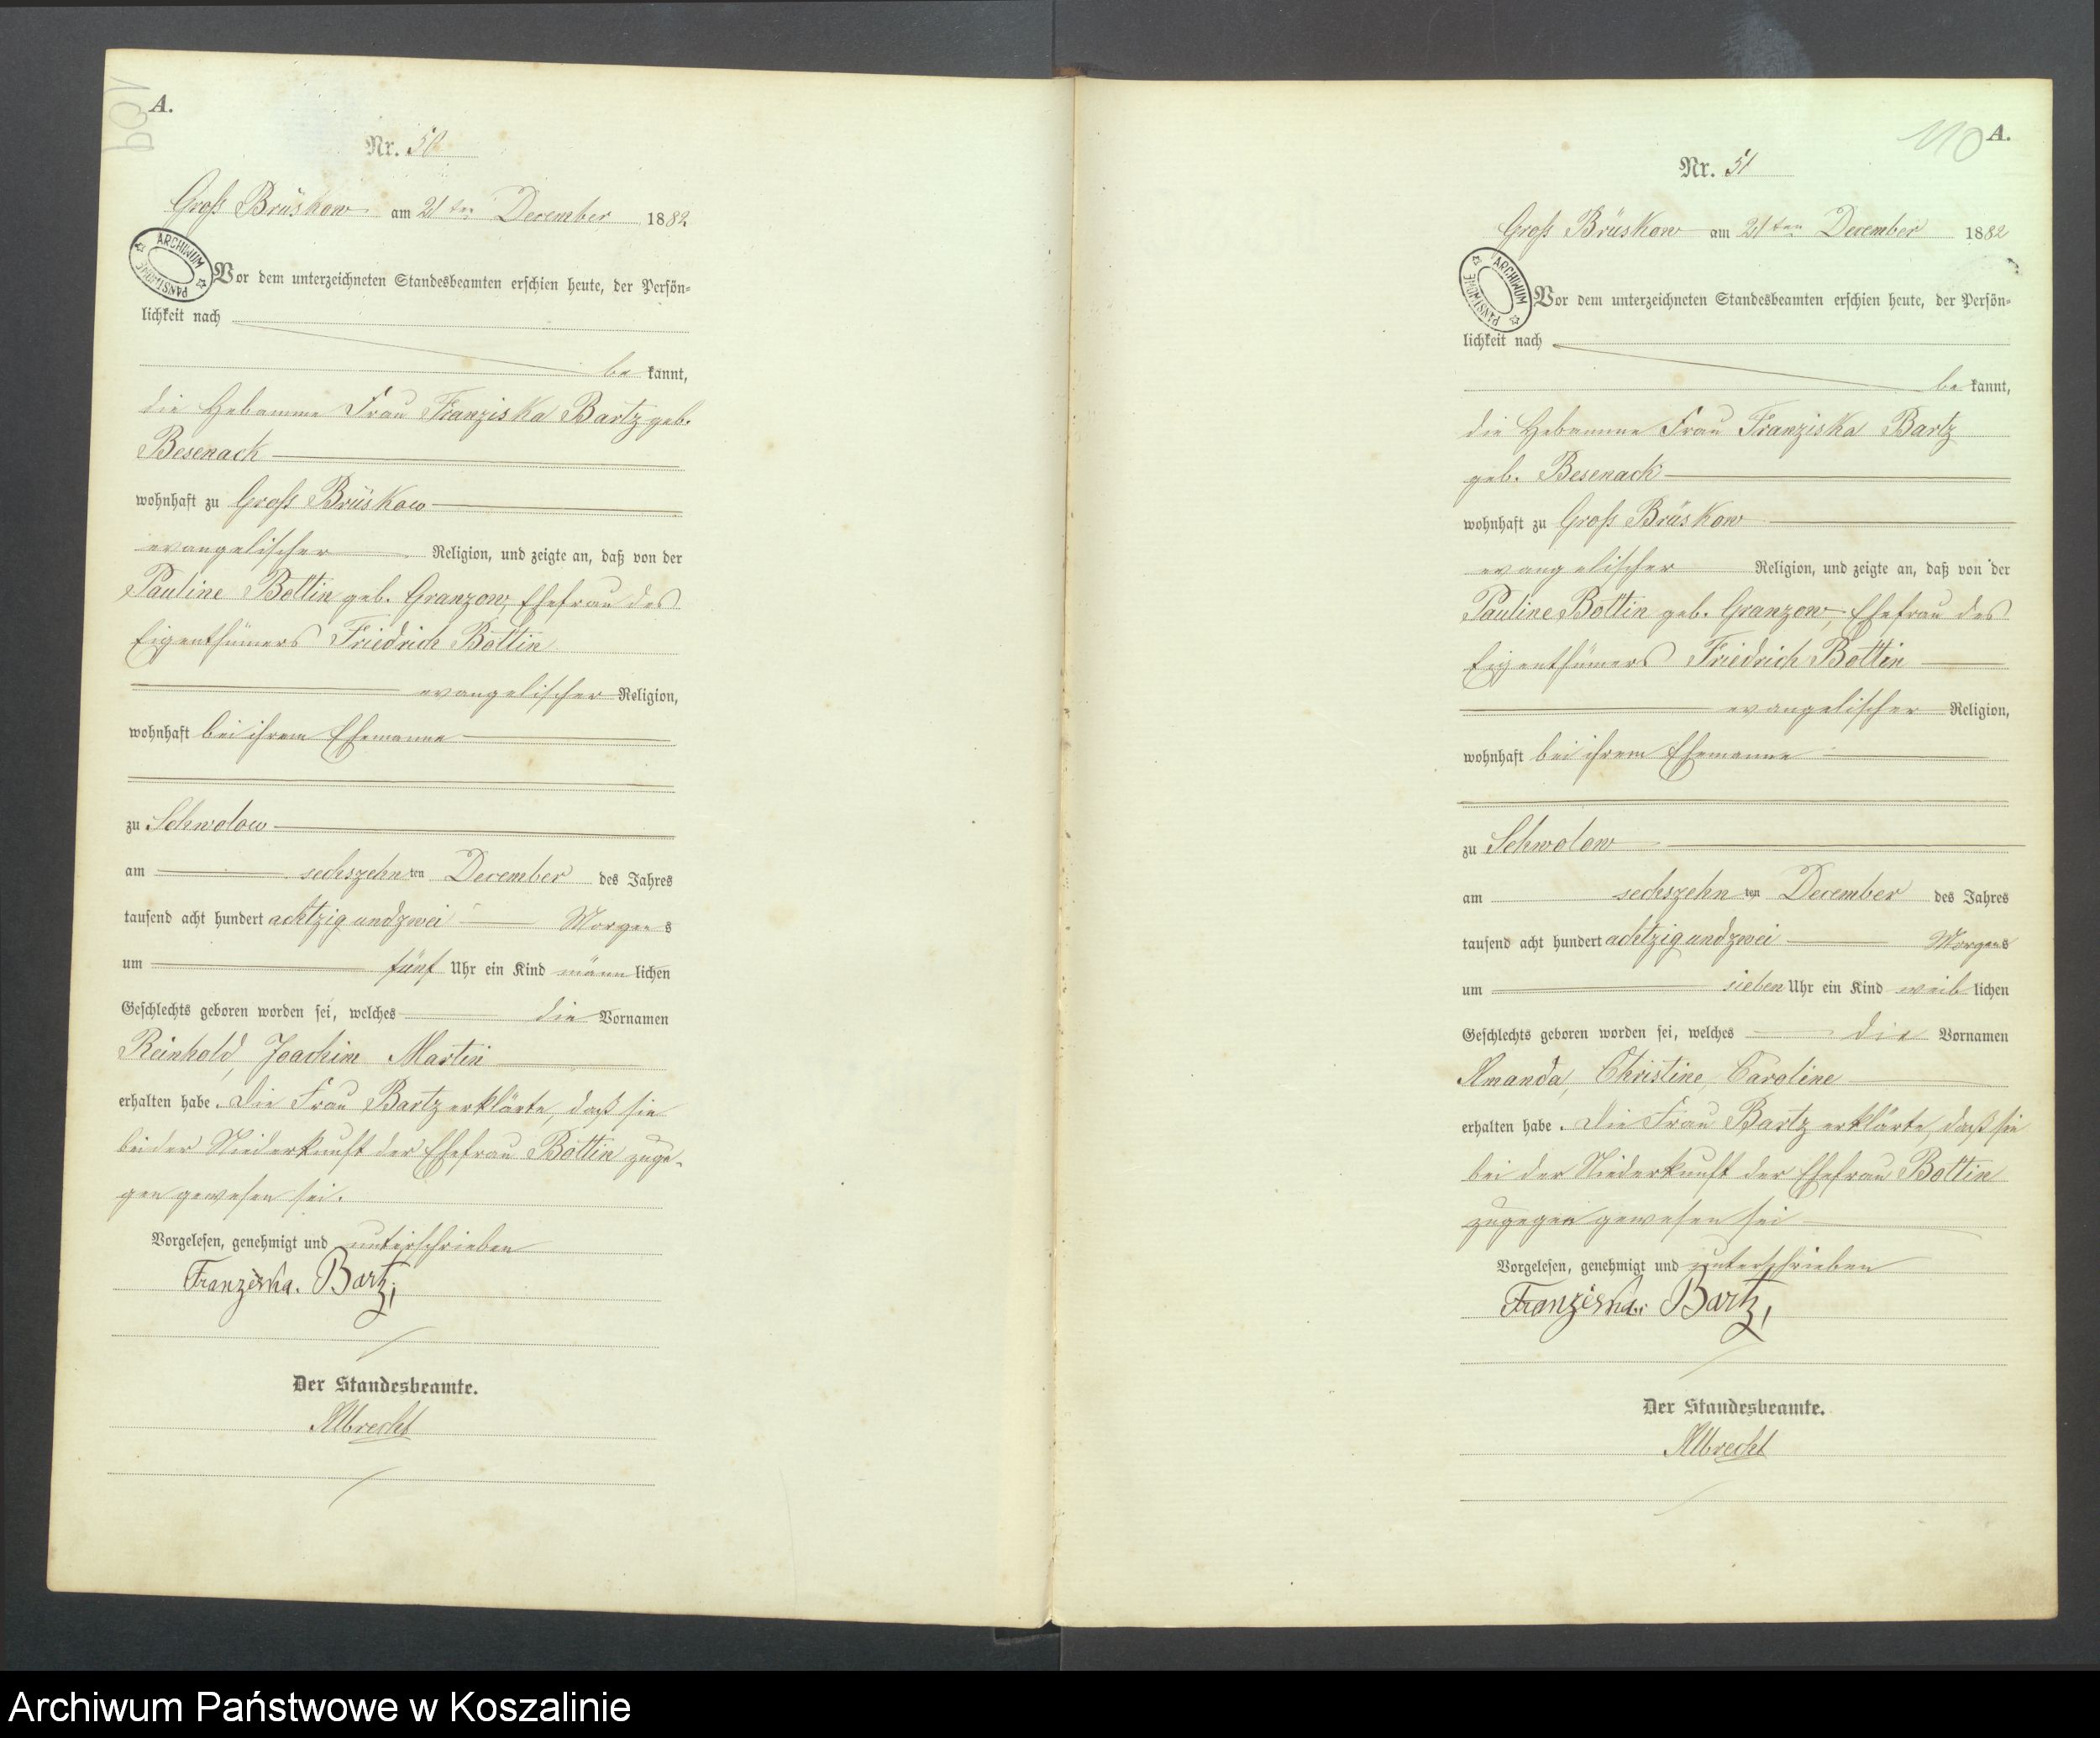 109
A.
Nr. 50
Groß Brüskow am 21ten December 1882
ARCHIWUM PAŃSTWOWE
Vor dem unterzeichneten Standesbeamten erschien heute, der Persön-
lichkeit nach
be kannt,
die Hebamme Frau Franziska Bartz geb.
Besenack
wohnhaft zu Groß Brüskow
evangelischer Religion, und zeigte an, daß von der
Pauline Bottin geb. Granzow, Ehefrau des
Eigenthümers Friedrich Bottin
evangelischer Religion,
wohnhaft bei ihrem Ehemanne
zu Schwolow
am sechszehn ten December des Jahres
tausend acht hundert achtzig und zwei Morgens
um fünf Uhr ein Kind männlichen
Geschlechts geboren worden sei, welches die Vornamen
Reinhold, Joachim Martin
erhalten habe. Die Frau Bartz erklärte, daß sie
bei der Niederkunft der Ehefrau Bottin zuge-
gen gewesen sei.
Vorgelesen, genehmigt und unterschrieben
Franziska. Bartz,
Der Standesbeamte.
Albrecht
110
A.
Nr. 51
Groß Brüskow am 21ten December 1882
ARCHIWUM PAŃSTWOWE
Vor dem unterzeichneten Standesbeamten erschien heute, der Persön-
lichkeit nach
be kannt,
die Hebamme Frau Franziska Bartz
geb. Besenack
wohnhaft zu Groß Brüskow
evangelischer Religion, und zeigte an, daß von der
Pauline Bottin geb. Granzow, Ehefrau des
Eigenthümers Friedrich Bottin
evangelischer Religion,
wohnhaft bei ihrem Ehemanne
zu Schwolow
am sechszehn ten December des Jahres
tausend acht hundert achtzig und zwei Morgens
um sieben Uhr ein Kind weiblichen
Geschlechts geboren worden sei, welches die Vornamen
Amanda, Christine, Caroline
erhalten habe. Die Frau Bartz erklärte, daß sie
bei der Niederkunft der Ehefrau Bottin
zugegen gewesen sei
Vorgelesen, genehmigt und unterschrieben
Franziska. Bartz,
Der Standesbeamte.
Albrecht
Archiwum Państwowe w Koszalinie